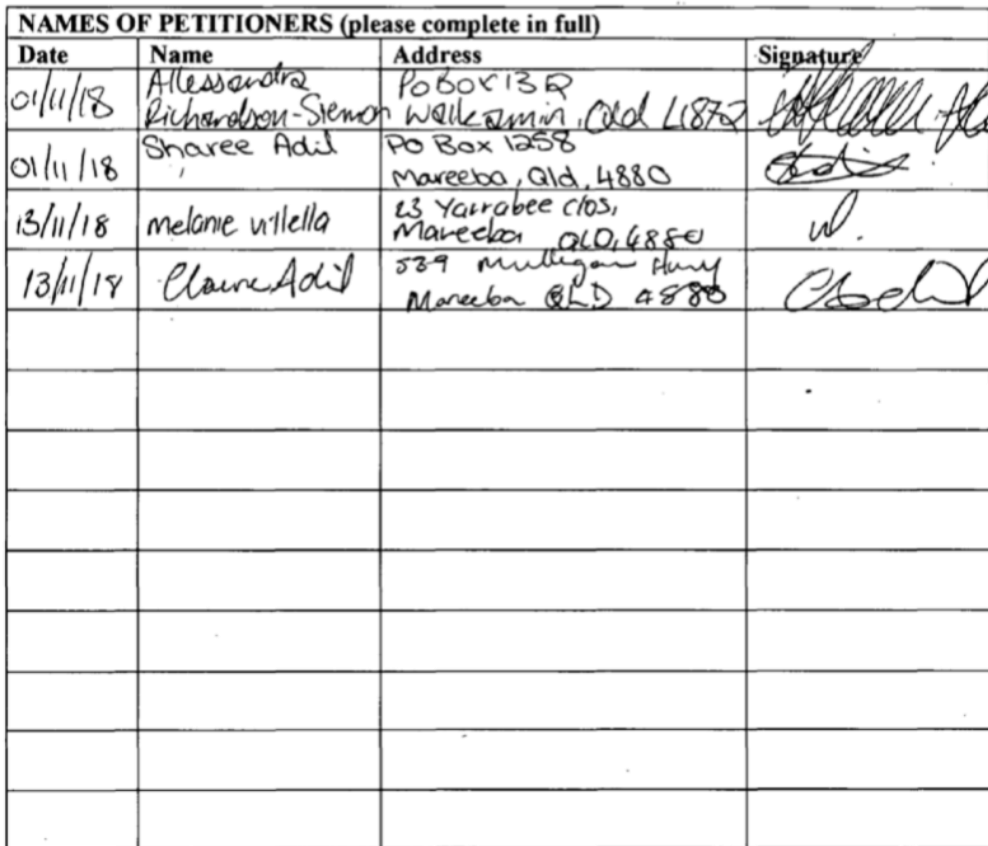 NAMES OF PETITIONERS (please complete in full)
Date Name Address Signature
01/11/18 Allessandra Richardson-Siemon PO BOX 132 Walkamin, Qld 4872
01/11/18 Sharee Adil PO Box 1258 Mareeba, Qld, 4880
13/11/18 melanie villella 23 Yarrabee clos, Mareeba QLD, 4880
13/11/18 Claire Adil 539 Mulligan Hwy Mareeba QLD 4880